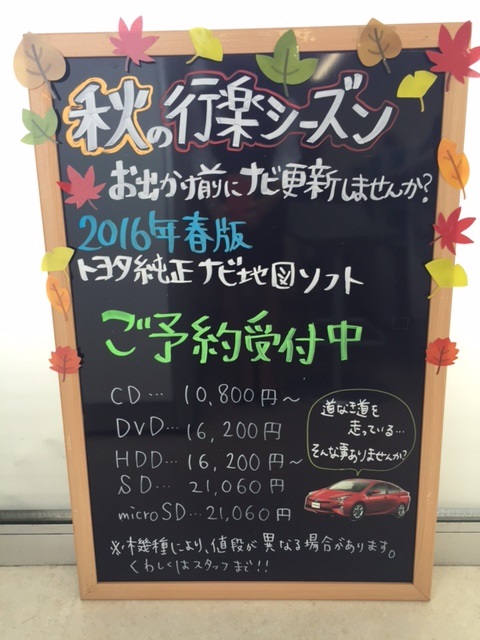 秋の行楽シーズン
お出かけ前にナビ更新しませんか?
2016年春版
トヨタ純正ナビ地図ソフト
ご予約受付中
CD… 10,800円~
DVD… 16,200円
HDD… 16,200円~
SD… 21,060円
microSD…21,060円
道なき道を
走っている…
そんな事ありませんか?
※機種により、値段が異なる場合があります。
くわしくはスタッフまで!!